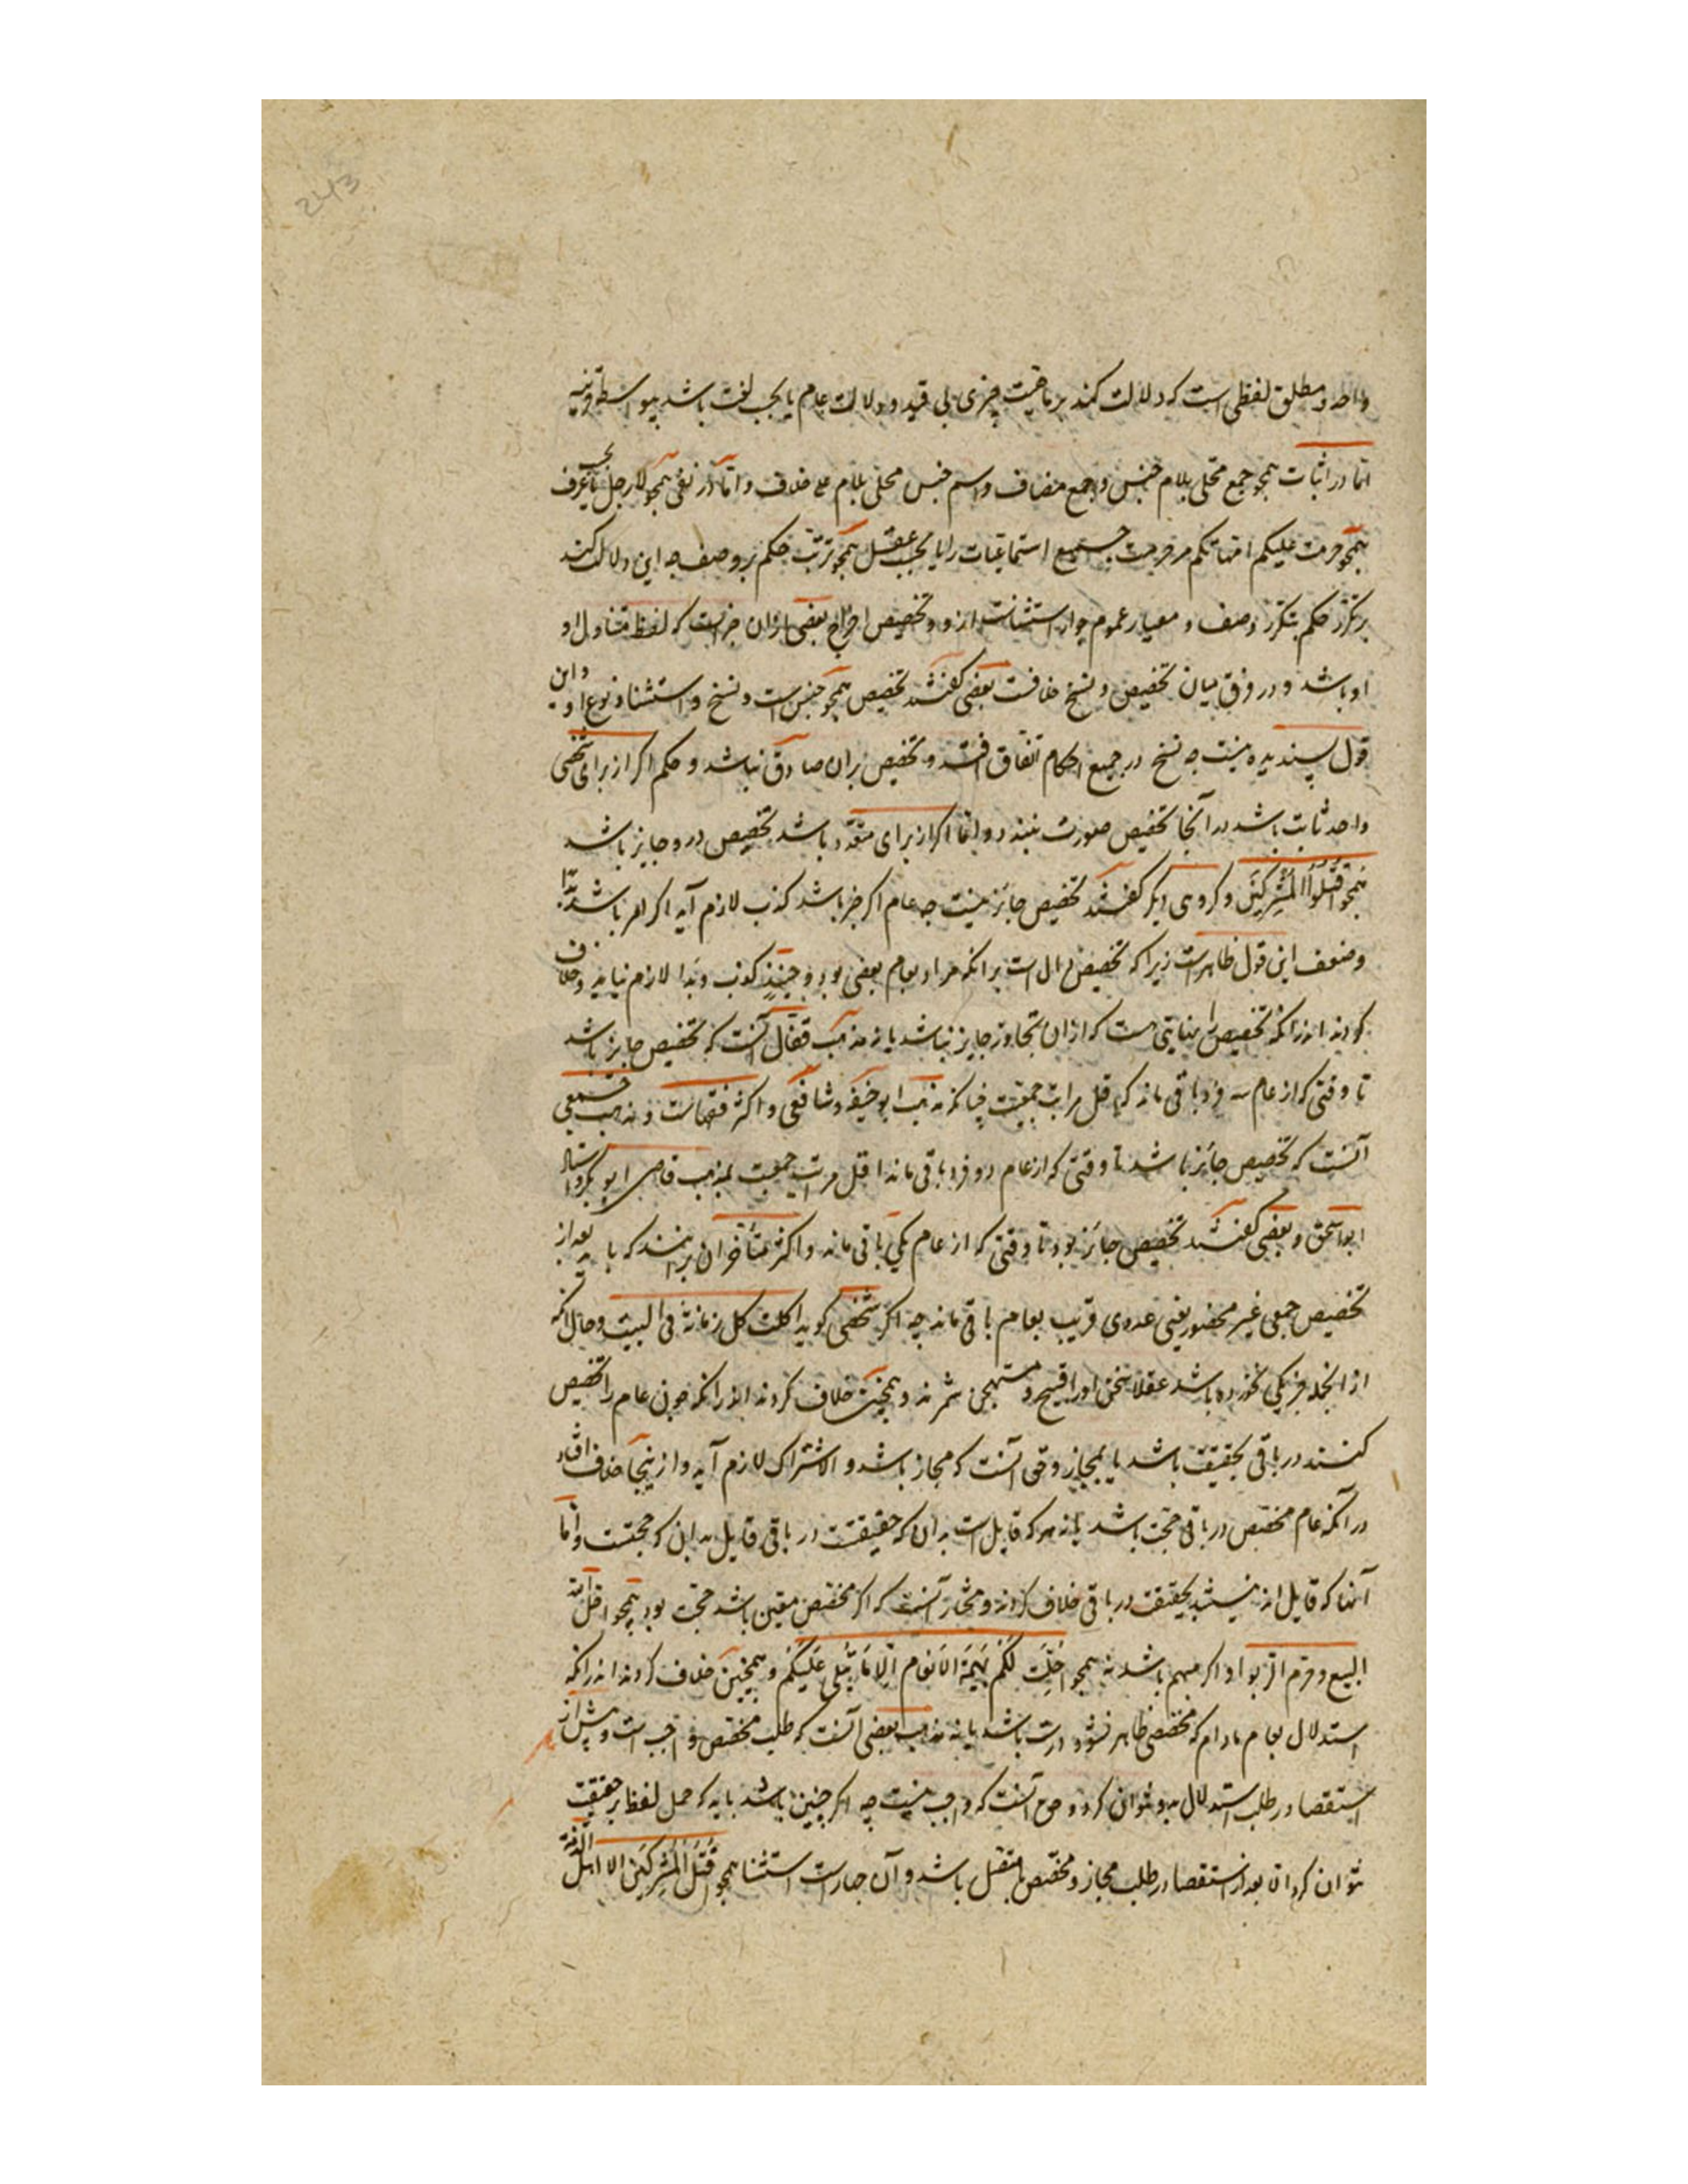 واحد و مطلق لفظی است که دلالت کند بر ماهیت چیزی بی قید و دلالت عام یا بحسب لغت باشد بواسطه قرینه
اما در اثبات همچو جمع محلی بلام جنس و جمع مضاف و اسم جنس محلی بلام علی خلاف و اما در نفی همچو لا رجل یا بحسب عرف
همچو حرمت علیکم امهاتکم مر حرمت جمیع استمتاعات را یا بحسب عقل همچو ترتب حکم بر وصف چه این دلالت کند
بر تکرر حکم بتکرر وصف و معیار عموم جواز استثناست ازو و تخصیص اخراج بعضی از آن چیزست که لفظ متناول او
او باشد و در فرق میان تخصیص و نسخ خلافست بعضی گفتند تخصیص همچو جنس است و نسخ و استثنا دو نوع او و این
قول پسندیده نیست چه نسخ در جمیع احکام اتفاق افتد و تخصیص بران صادق نباشد و حکم اگر از برای شخصی
واحد ثابت باشد در آنجا تخصیص صورت نبندد و اما اگر از برای متعدد باشد تخصیص درو جایز باشد
همچو اقتلوا المشرکین و گروهی دیگر گفتند تخصیص جائز نیست چه عام اگر خبر باشد کذب لازم آید اگر امر باشد بدا
و ضعف این قول ظاهرست زیرا که تخصیص دال است بر آنکه مراد بعام بعضی بود و حینئذ کذب و بدا لازم نیاید و خلاف
کردند اندرانکه تخصیص را نهایتی هست که از ان تجاوز جایز نباشد یا نه مذهب قفال آنست که تخصیص جایز باشد
تا وقتی که از عام سه فرد باقی ماند که اقل مراتب جمعیت چنانکه مذهب ابوحنیفه و شافعی و اکثر فقهاست و مذهب جمعی
آنست که تخصیص جائز باشد تا وقتی که از عام دو فرد باقی ماند اقل مراتب جمعیت بمذهب قاضی ابو بکر و استاد
ابو اسحق و بعضی گفتند تخصیص جائز بود تا وقتی که از عام یکی باقی ماند و اکثر متأخران برینند که باید بعد از
تخصیص جمعی غیر محصور یعنی عددی قریب بعام باقی ماند چه اگر شخصی گوید اکلت کل رمانة فی البیت و حال آنکه
از آنجمله جز یکی نخورده باشد عقلا سخن او را قبیح و مستهجن شمرند و همچنین خلاف کردند اندرانکه چون عام را تخصیص
کنند در باقی بحقیقت باشد یا بمجاز و حق آنست که مجاز باشد و الا اشتراک لازم آید و از ینجا خلاف افتاد
در آنکه عام مخصص در باقی حجت باشد یا نه هر که قایل است بدان که حقیقتست در باقی قایل بدان که حجتست و اما
آنها که قایل اند نیستند بحقیقت در باقی خلاف کردند و مختار آنست که اگر مخصص معین باشد حجت بود همچو احل الله
البیع و حرم الربوا و اگر مبهم باشد نه همچو احلت لکم بهیمة الانعام الا ما یتلی علیکم و همچنین خلاف کردند اندرانکه
استدلال بعام مادام که مخصصی ظاهر نشود درست باشد یا نه مذهب بعضی آنست که طلب مخصص واجب است و پیش از
استقصا در طلب استدلال بدو نتوان کرد و اصح آنست که واجب نیست چه اگر چنین باشد باید که حمل لفظ بر حقیقت
نتوان کرد الا بعد از استقصا در طلب مجاز و مخصص یا متصل باشد و آن چهارست استثنا همچو اقتلوا المشرکین الا اهل الذمة